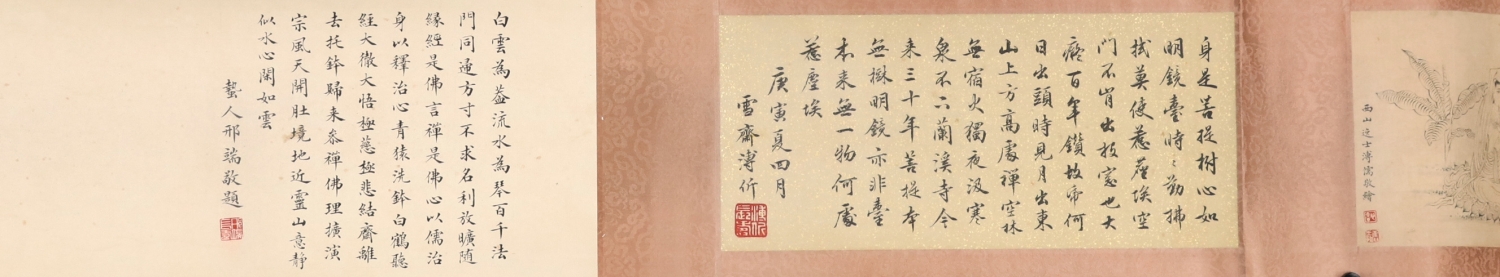 西山逸士溥儒敬繪
身是菩提樹心如
明鏡臺時〻勤拂
拭莫使惹塵埃空
門不肯出投窓也大
癡百年鑽故帋何
日出頭時見月出東
山上方高處禪空林
無宿火獨夜汲寒
泉不下蘭溪寺今
来三十年菩提本
無樹明鏡亦非臺
本来無一物何處
惹塵埃
庚寅夏四月
雪齋溥伒
白雲為蓋流水為琴百千法
門同通方寸不求名利放曠随
緣經是佛言禪是佛心以儒治
身以釋治心青猿洗鉢白鶴聽
經大徹大悟極慈極悲結齋離
去托鉢歸来叅禪佛理擴演
宗風天開壯境地近靈山意靜
似水心閑如雲
蟄人邢端敬題